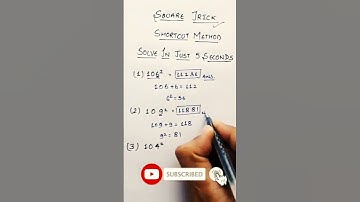 SQUARE TRICK
SHORTCUT METHOD
SOLVE IN JUST 5 SECONDS
(1) 106² = 11236 Ans.
106 + 6 = 112
6² = 36
(2) 109² = 11881
109 + 9 = 118
9² = 81
(3) 104²
SUBSCRIBED